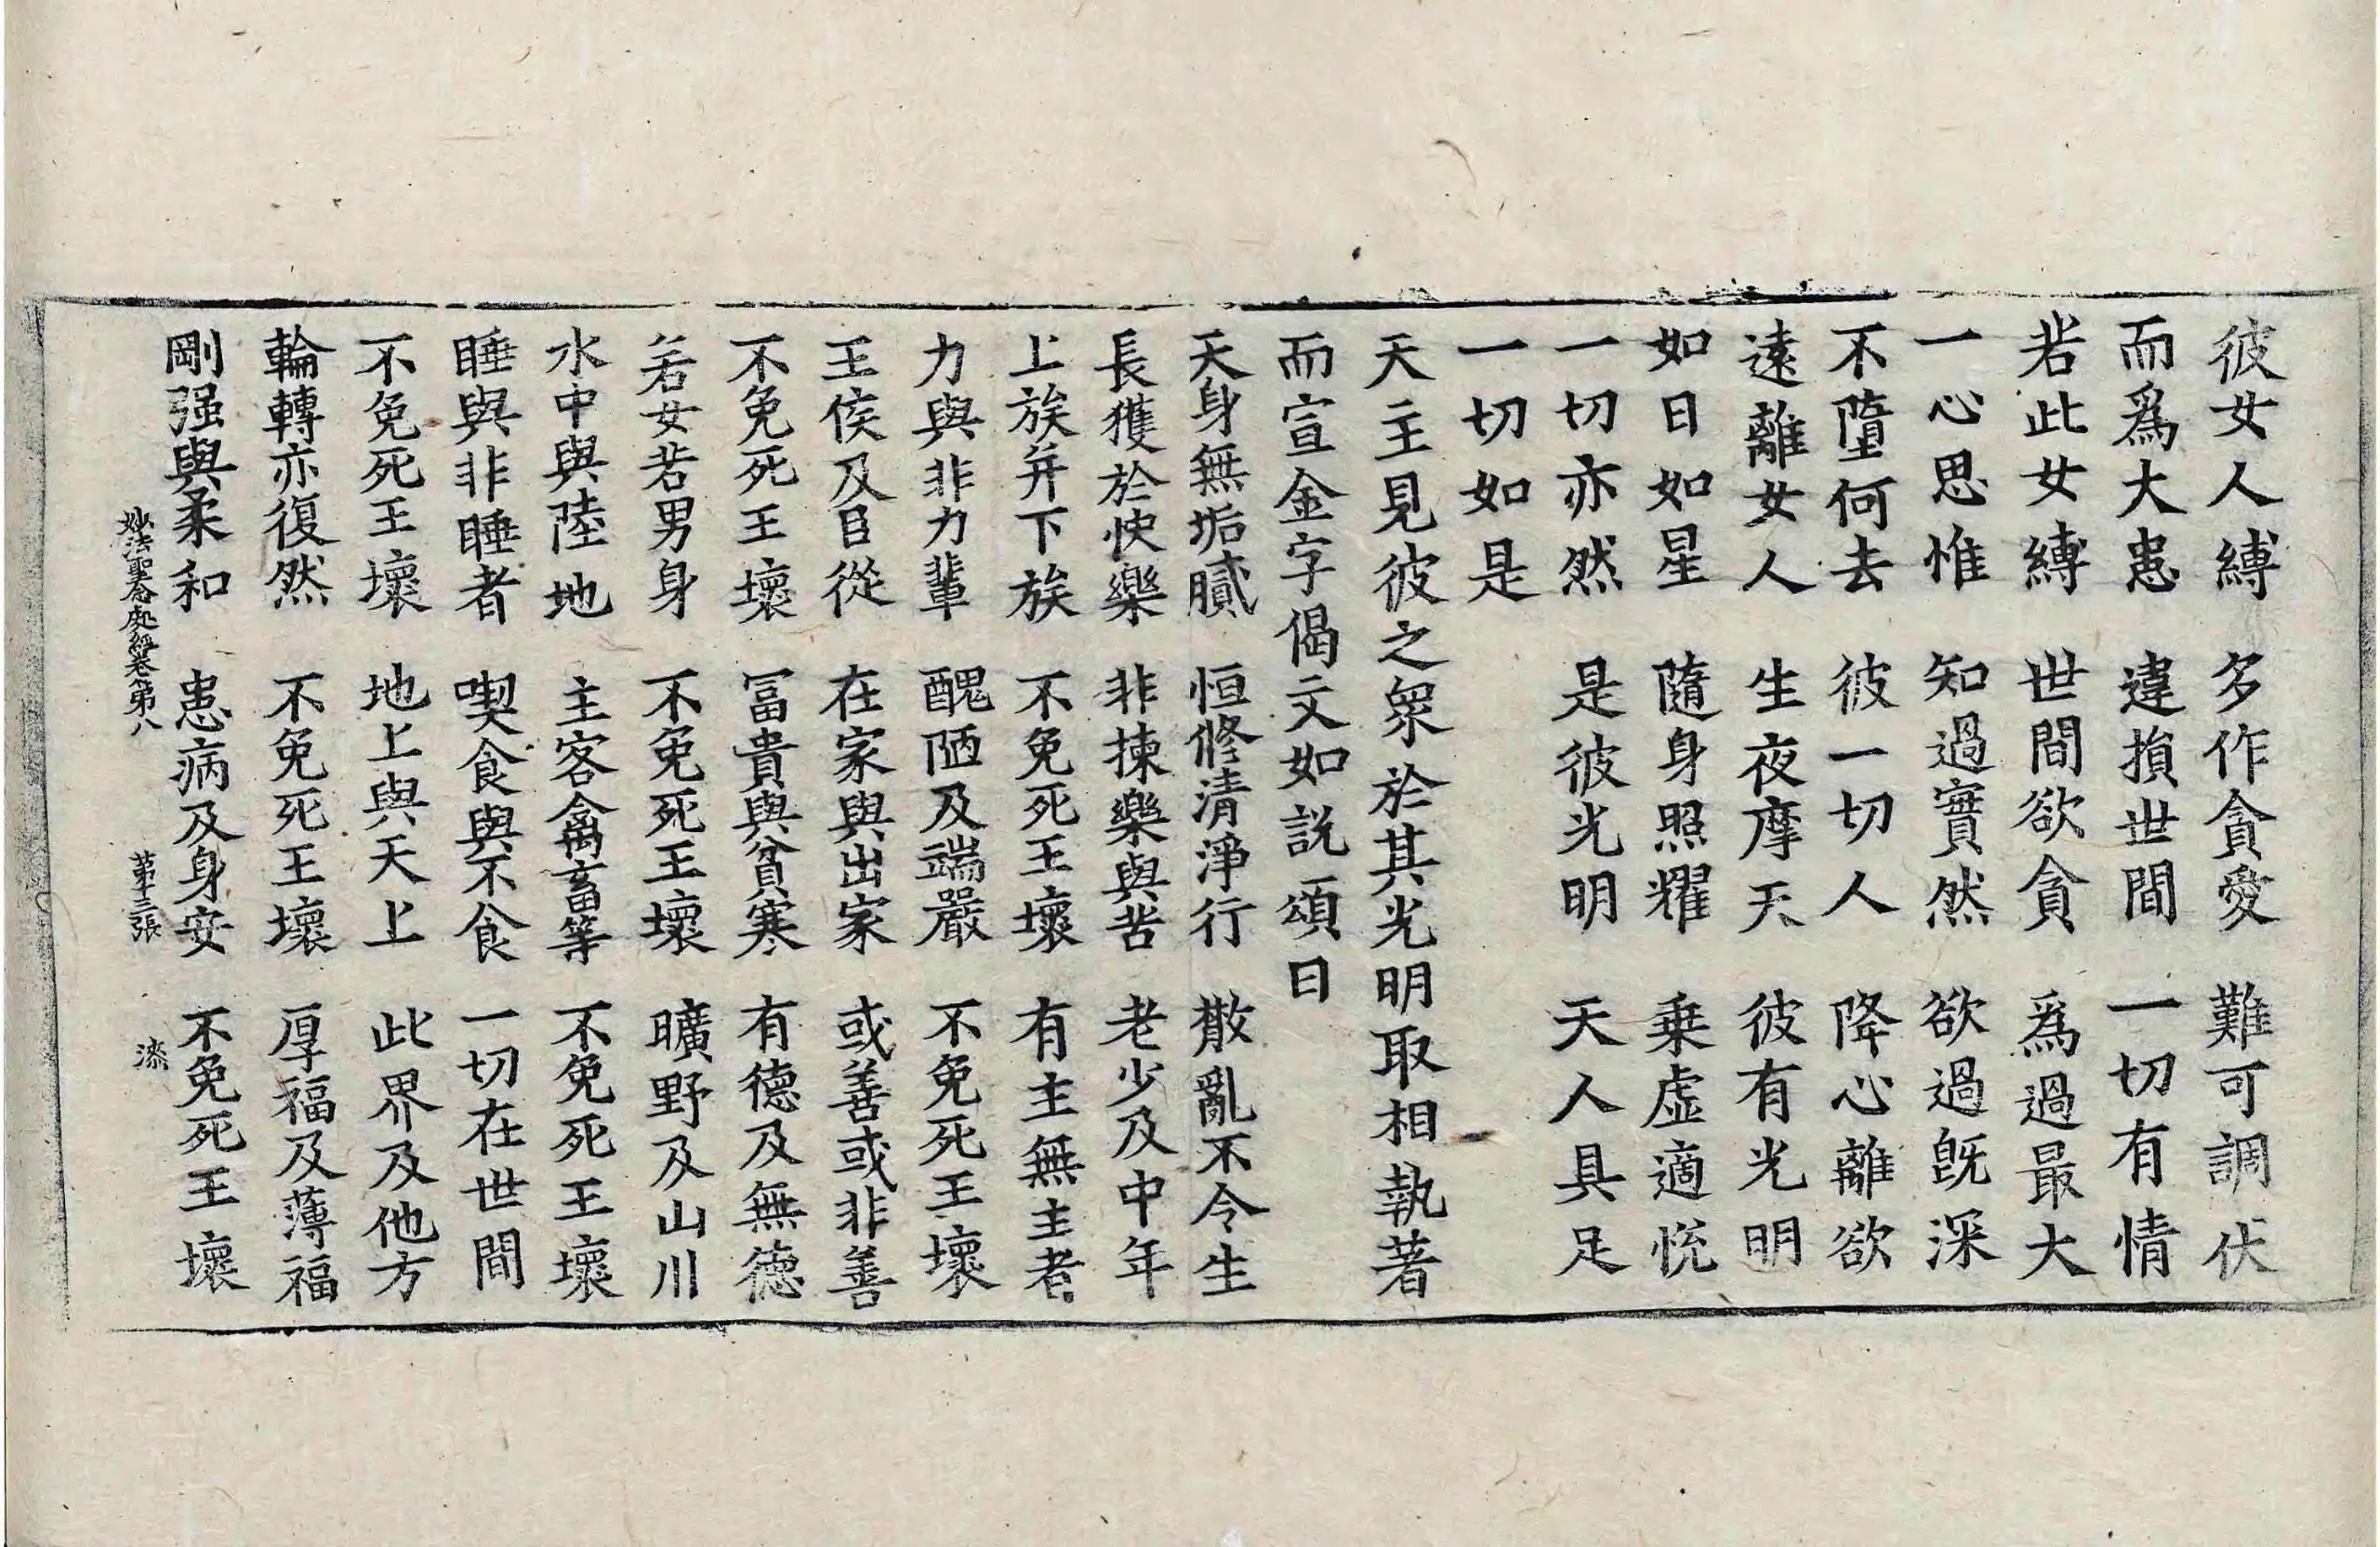 彼女人縛 多作貪愛 難可調伏
而爲大患 違損世間 一切有情
若此女縛 世間欲貪 爲過最大
一心思惟 知過實然 欲過旣深
不墮何去 彼一切人 降心離欲
遠離女人 生夜摩天 彼有光明
如日如星 隨身照耀 乗虛適恱
一切亦然 是彼光明 天人具足
一切如是
天主見彼之衆於其光明取相執著
而宣金字偈文如説頌曰
天身無垢膩 恒修清淨行 散亂不令生
長獲於快樂 非揀樂與苦 老少及中年
上族并下族 不免死王壞 有主無主者
力與非力輩 醜陋及端嚴 不免死王壞
王侯及臣從 在家與出家 或善或非善
不免死王壞 冨貴與貧寒 有德及無德
若女若男身 不免死王壞 曠野及山川
水中與陸地 主客禽畜等 不免死王壞
睡與非睡者 喫食與不食 一切在世間
不免死王壞 地上與天上 此界及他方
輪轉亦復然 不免死王壞 厚福及薄福
剛强與柔和 患病及身安 不免死王壞
妙法聖念處經卷第八 第十三張 漆